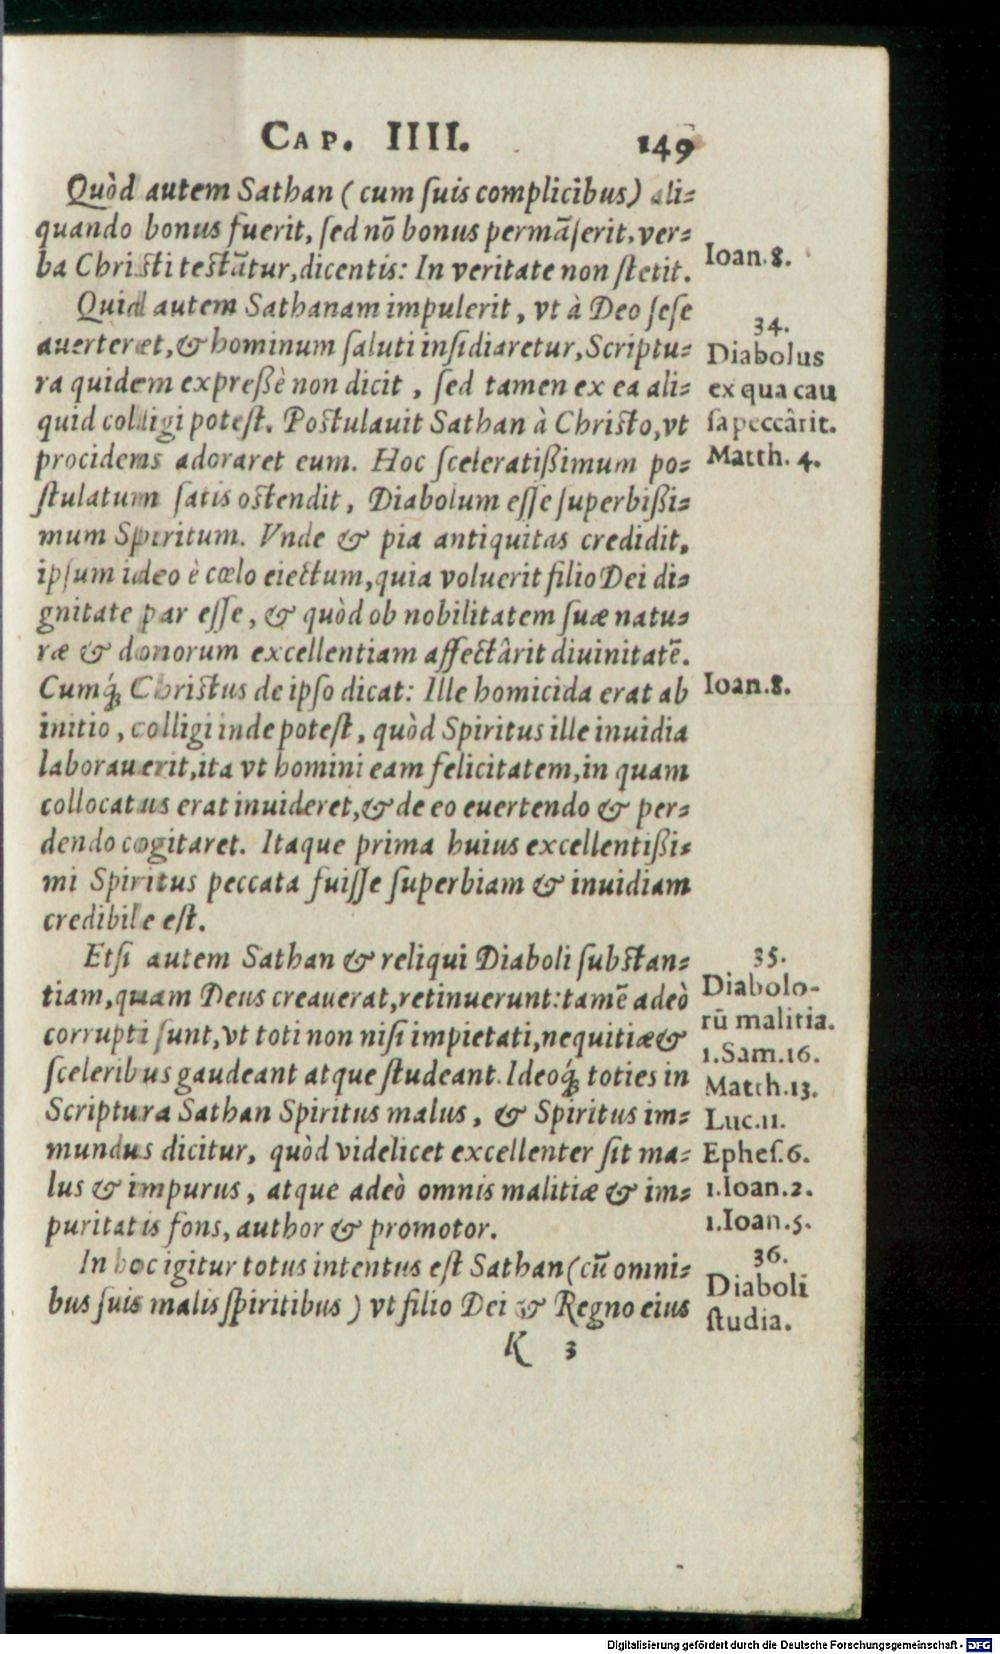 CAP. IIII. 149
Quòd autem Sathan (cum ſuis complicibus) ali-
quando bonus fuerit, ſed nō bonus permāſerit, ver-
ba Chriſti teſtātur, dicentis: In veritate non ſtetit.
Ioan. 8.
Quid autem Sathanam impulerit, vt à Deo ſeſe
auerteret, & hominum ſaluti inſidiaretur, Scriptu-
ra quidem expreßè non dicit, ſed tamen ex ea ali-
quid colligi poteſt. Poſtulauit Sathan à Chriſto, vt
procidens adoraret eum. Hoc ſceleratißimum po-
ſtulatum ſatis oſtendit, Diabolum eſſe ſuperbißi-
mum Spiritum. Vnde & pia antiquitas credidit,
ipſum ideo è cœlo eiectum, quia voluerit filio Dei di-
gnitate par eſſe, & quòd ob nobilitatem ſuæ natu-
ræ & donorum excellentiam affectârit diuinitatē.
34.
Diabolus
ex qua cau
ſa peccârit.
Matth. 4.
Cumq́; Chriſtus de ipſo dicat: Ille homicida erat ab
initio, colligi inde poteſt, quòd Spiritus ille inuidia
laborauerit, ita vt homini eam felicitatem, in quam
collocatus erat inuideret, & de eo euertendo & per-
dendo cogitaret. Itaque prima huius excellentißi-
mi Spiritus peccata fuiſſe ſuperbiam & inuidiam
credibile eſt.
Ioan. 8.
Etſi autem Sathan & reliqui Diaboli ſubſtan-
tiam, quam Deus creauerat, retinuerunt: tamē adeò
corrupti ſunt, vt toti non niſi impietati, nequitiæ &
ſceleribus gaudeant atque ſtudeant. Ideoq́; toties in
Scriptura Sathan Spiritus malus, & Spiritus im-
mundus dicitur, quòd videlicet excellenter ſit ma-
lus & impurus, atque adeò omnis malitiæ & im-
puritatis fons, author & promotor.
35.
Diabolo-
rū malitia.
1. Sam. 16.
Matth. 13.
Luc. 11.
Epheſ. 6.
1. Ioan. 2.
1. Ioan. 5.
In hoc igitur totus intentus eſt Sathan (cū omni-
bus ſuis malis ſpiritibus) vt filio Dei & Regno eius
36.
Diaboli
ſtudia.
K 3
Digitalisierung gefördert durch die Deutsche Forschungsgemeinschaft - DFG